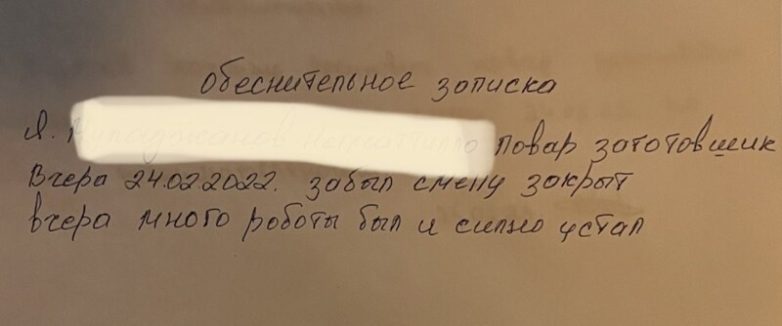 обеснительное записка
Я. повар заготовщик
Вчера 24.02.2022. забыл смену закрыт
вчера много роботы был и силно устал